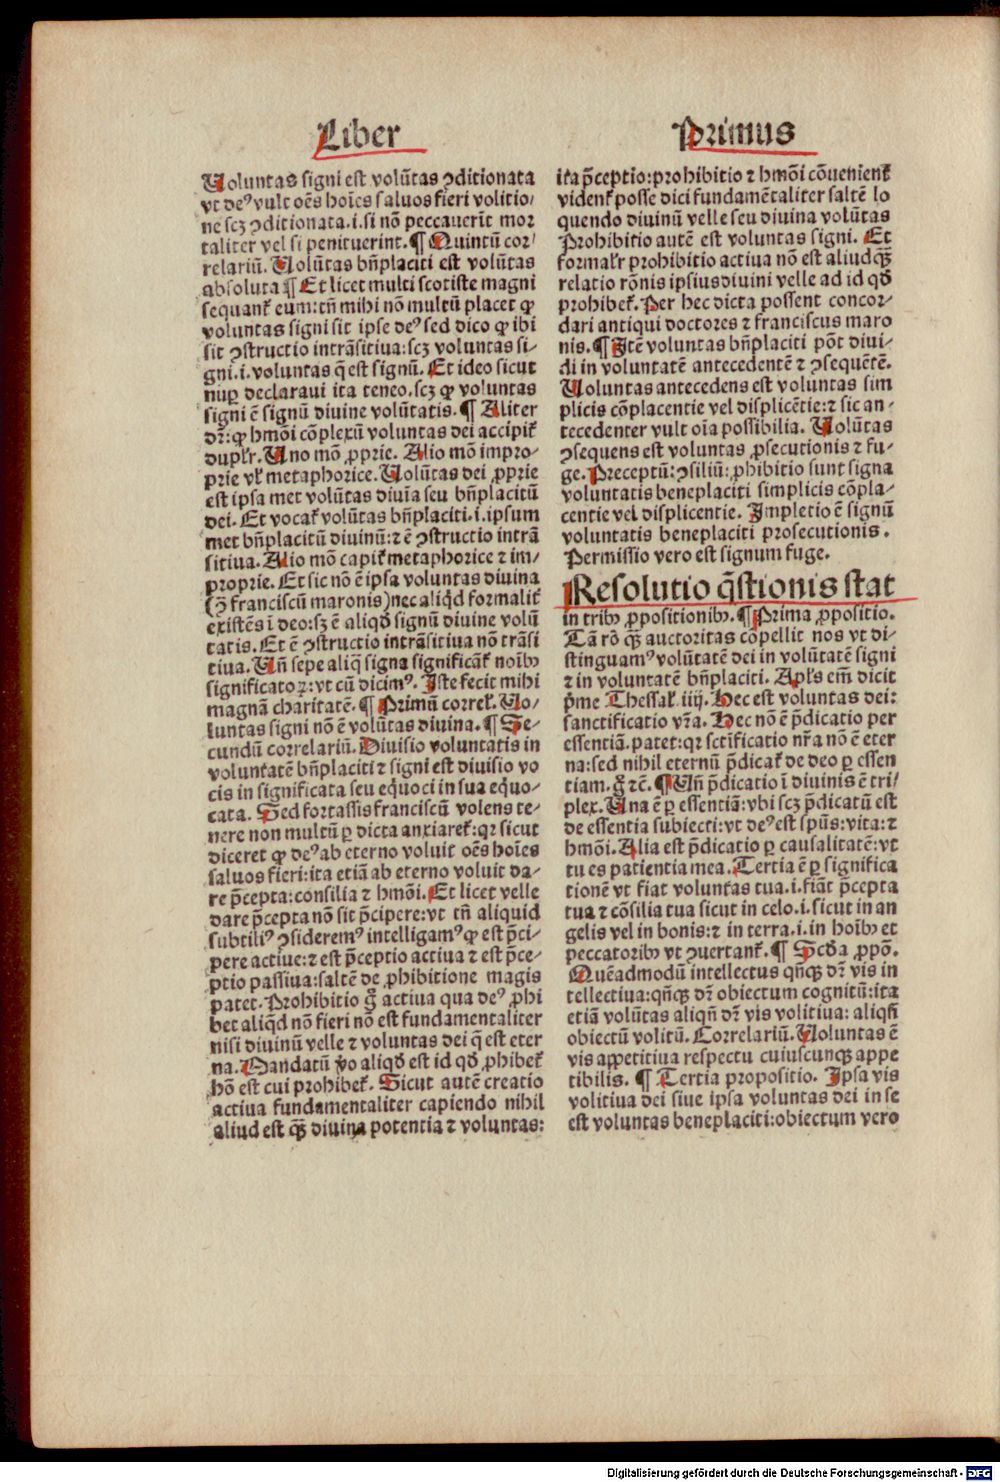 Liber Primus
Uoluntas signi est volūtas ꝯditionata
vt deꝰ vult oēs hoīes saluos fieri volitio/
ne scꝫ ꝯditionata.i.si nō peccauerīt mor
taliter vel si penituerint. ¶ Quintū cor/
relariū. Uolūtas bn̄placiti est volūtas
absoluta ¶ Et licet multi scotiste magni
sequant᷑ eum: tn̄ mihi nō multū placet ꝙ
voluntas signi sit ipse deꝰ sed dico ꝙ ibi
sit ꝯstructio intrāsitiua: scꝫ voluntas si-
gni.i.voluntas q̄ est signū. Et ideo sicut
nuꝑ declaraui ita teneo.scꝫ ꝙ voluntas
signi ē signū diuine volūtatis. ¶ Aliter
dr̄: ꝙ hmōi cōplexū voluntas dei accipit᷑
duplr̄. Uno mō ꝓprie. Alio mō impro-
prie vl᷑ metaphorice. Uolūtas dei ꝓprie
est ipsa met volūtas diuīa seu bn̄placitū
dei. Et vocat᷑ volūtas bn̄placiti.i.ipsum
met bn̄placitū diuinū: ⁊ ē ꝯstructio intrā
sitiua. Alio mō capit᷑ metaphorice ⁊ im/
proprie. Et sic nō ē ipsa voluntas diuina
(ꝯ̄ franciscū maronis) nec aliqd̄ formalit᷑
existēs ī deo: sꝫ ē aliqd̄ signū diuine volū
tatis. Et ē ꝯstructio intrāsitiua nō trāsi
tiua. Un̄ sepe aliq̄ signa significāt᷑ noībꝫ
significatoꝝ: vt cū dicimꝰ. Iste fecit mihi
magnā charitatē. ¶ Primū correl᷑. Uo-
luntas signi nō ē volūtas diuina. ¶ Se-
cundū correlariū. Diuisio voluntatis in
voluntatē bn̄placiti ⁊ signi est diuisio vo
cis in significata seu equoci in sua equo-
cata. Sed fortassis franciscū volens te-
nere non multū ꝑ dicta anxiaret᷑: qꝛ sicut
diceret ꝙ deꝰ ab eterno voluit oēs hoīes
saluos fieri: ita etiā ab eterno voluit da-
re p̄cepta: consilia ⁊ hmōi. Et licet velle
dare p̄cepta nō sit p̄cipere: vt tn̄ aliquid
subtiliꝰ ꝯsideremꝰ intelligamꝰ ꝙ est p̄ci-
pere actiue: ⁊ est p̄ceptio actiua ⁊ est p̄ce-
ptio passiua: saltē de ꝓhibitione magis
patet. Prohibitio g̊ actiua qua deꝰ ꝓhi
bet aliqd̄ nō fieri nō est fundamentaliter
nisi diuinū velle ⁊ voluntas dei q̄ est eter
na. Mandatū v̄o aliqd̄ est id qd̄ ꝓhibet᷑
hō est cui prohibet᷑. Sicut autē creatio
actiua fundamentaliter capiendo nihil
aliud est qꝫ̄ diuina potentia ⁊ voluntas:
ita p̄ceptio: prohibitio ⁊ hmōi cōuenient᷑
vident᷑ posse dici fundamētaliter saltē lo
quendo diuinū velle seu diuina volūtas
Prohibitio autē est voluntas signi. Et
formalr̄ prohibitio actiua nō est aliud qꝫ̄
relatio rōnis ipsius diuini velle ad id qd̄
prohibet᷑. Per hec dicta possent concor-
dari antiqui doctores ⁊ franciscus maro
nis. ¶ Itē voluntas bn̄placiti pōt diui-
di in voluntatē antecedentē ⁊ ꝯsequētē.
Uoluntas antecedens est voluntas sim
plicis cōplacentie vel displicētie: ⁊ sic an-
tecedenter vult oīa possibilia. Uolūtas
ꝯsequens est voluntas ꝓsecutionis ⁊ fu-
ge. Preceptū: ꝯsiliū: ꝓhibitio sunt signa
voluntatis beneplaciti simplicis cōpla-
centie vel displicentie. Impletio ē signū
voluntatis beneplaciti prosecutionis.
Permissio vero est signum fuge.
Resolutio q̄stionis stat
in tribꝫ ꝓpositionibꝫ. ¶ Prima ꝓpositio.
Tā rō qꝫ̄ auctoritas cōpellit nos vt di-
stinguamꝰ volūtatē dei in volūtatē signi
⁊ in voluntatē bn̄placiti. Apl̄s em̄ dicit
p̄me Thessal᷑. iiij. Hec est voluntas dei:
sanctificatio vr̄a. Hec nō ē p̄dicatio per
essentiā. patet: qꝛ sctificatio nr̄a nō ē eter
na: sed nihil eternū p̄dicat᷑ de deo ꝑ essen
tiam. g̊ ⁊c̄. ¶ Un̄ p̄dicatio ī diuinis ē tri/
plex. Una ē ꝑ essentiā: vbi scꝫ p̄dicatū est
de essentia subiecti: vt deꝰ est spūs: vita: ⁊
hmōi. Alia est p̄dicatio ꝑ causalitatē: vt
tu es patientia mea. Tertia ē ꝑ significa
tionē vt fiat voluntas tua.i.fiāt p̄cepta
tua ⁊ cōsilia tua sicut in celo.i.sicut in an
gelis vel in bonis: ⁊ in terra.i.in hoībꝫ et
peccatoribꝫ vt ꝯuertant᷑. ¶ Scd̄a ꝓpō.
Quēadmodū intellectus qn̄qꝫ dr̄ vis in
tellectiua: qn̄qꝫ dr̄ obiectum cognitū: ita
etiā volūtas aliqn̄ dr̄ vis volitiua: aliqn̄
obiectū volitū. Correlariū. Uoluntas ē
vis appetitiua respectu cuiuscunqꝫ appe
tibilis. ¶ Tertia propositio. Ipsa vis
volitiua dei siue ipsa voluntas dei in se
est voluntas beneplaciti: obiectum vero
Digitalisierung gefördert durch die Deutsche Forschungsgemeinschaft - DFG